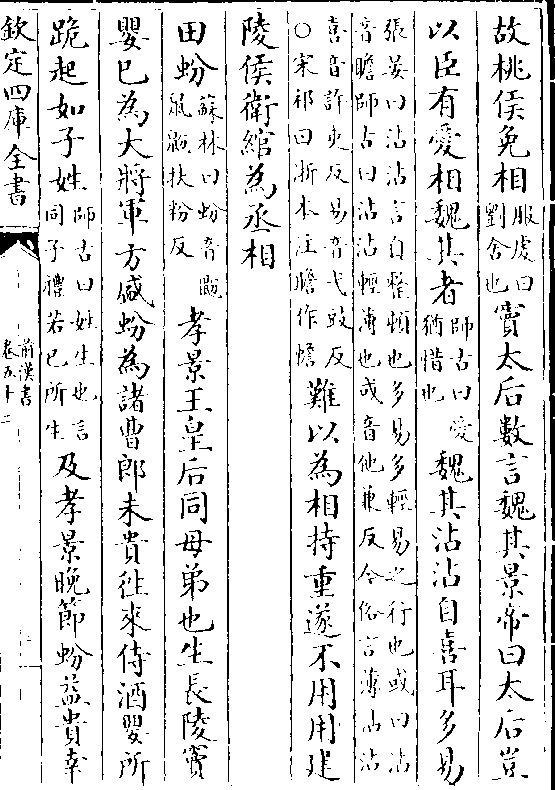 故桃侯免相服虔曰
劉舍也竇太后數言魏其景帝曰太后豈
以臣有愛相魏其者師古曰愛
猶惜也魏其沾沾自喜耳多易
張晏曰沾沾言自整頓也多易多輕易之行也或曰沾
音瞻師古曰沾沾輕薄也或音他兼反今俗言薄沾沾
喜音許吏反易音弋豉反
○宋祁曰浙本注瞻作幨難以為相持重遂不用用建
陵侯衛綰為丞相
田蚡蘇林曰蚡音鼢
鼠鼢扶粉反孝景王皇后同母弟也生長陵竇
嬰已為大將軍方盛蚡為諸曹郎未貴往來侍酒嬰所
跪起如子姓師古曰姓生也言
同子禮若已所生及孝景晚節蚡益貴幸
欽定四庫全書
前漢書
卷五十二